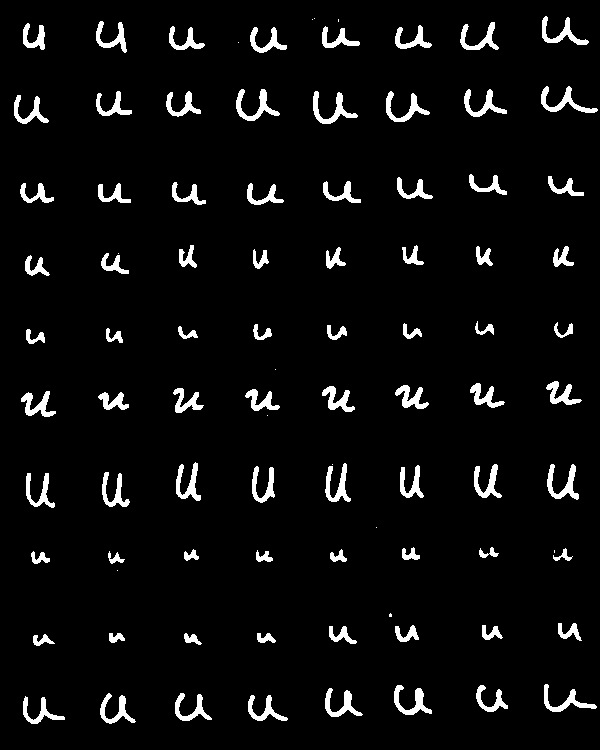 u u u u u u u u
u u u u u u u u
u u u u u u u u
u u u u u u u u
u u u u u u u u
u u u u u u u u
u u u u u u u u
u u u u u u u u
u u u u u u u u
u u u u u u u u